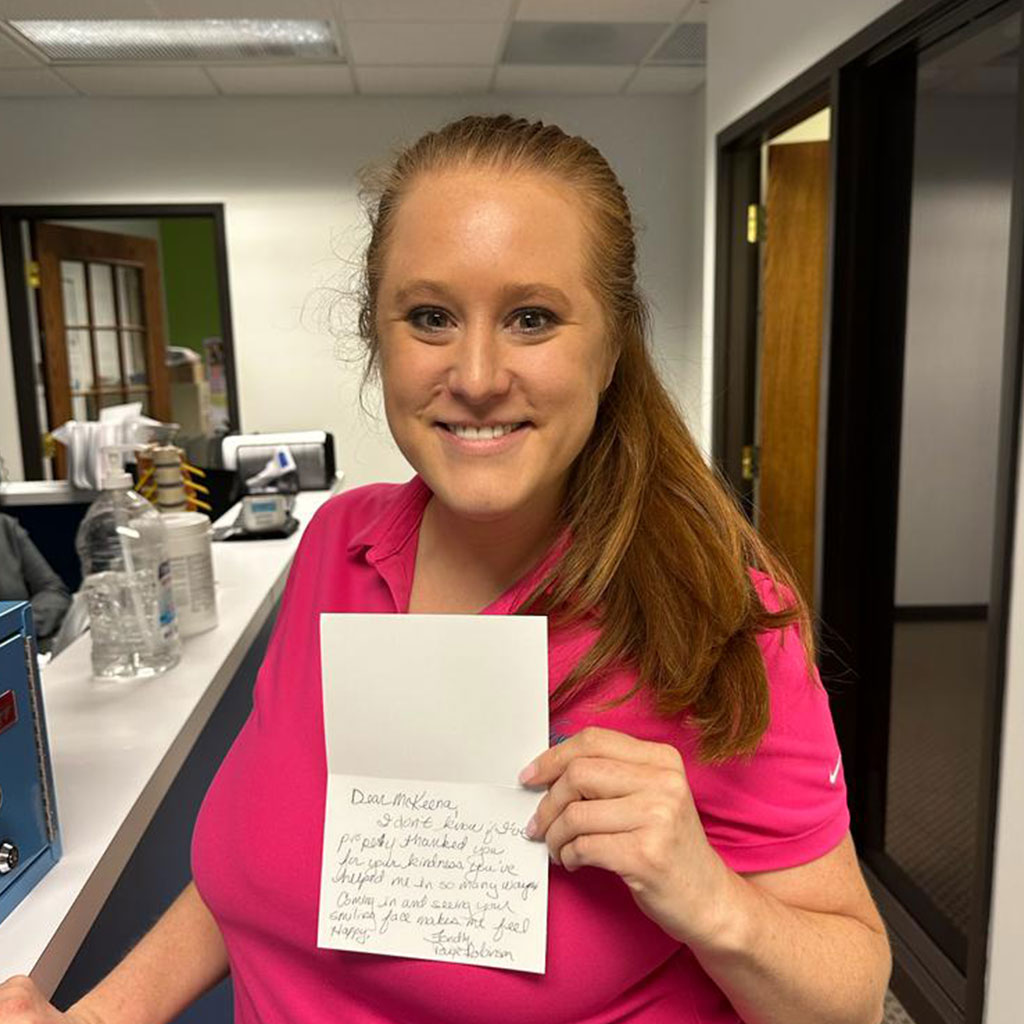 Dear McKeena,
I don't know if I've
properly thanked you
for your kindness. You've
helped me in so many ways
Coming in and seeing your
smiling face makes me feel
Happy.
Fondly,
Paige Robinson